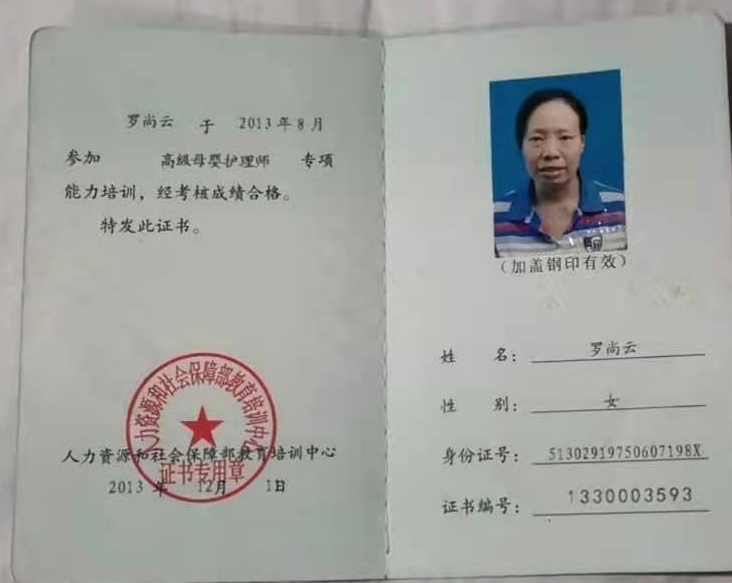 罗尚云 于 2013年8月
参加 高级母婴护理师 专项
能力培训，经考核成绩合格。
特发此证书。
人力资源和社会保障部教育培训中心
证书专用章
人力资源和社会保障部教育培训中心
2013年 12月 1日
（加盖钢印有效）
姓 名： 罗尚云
性 别： 女
身份证号： 51302919750607198X
证书编号： 1330003593